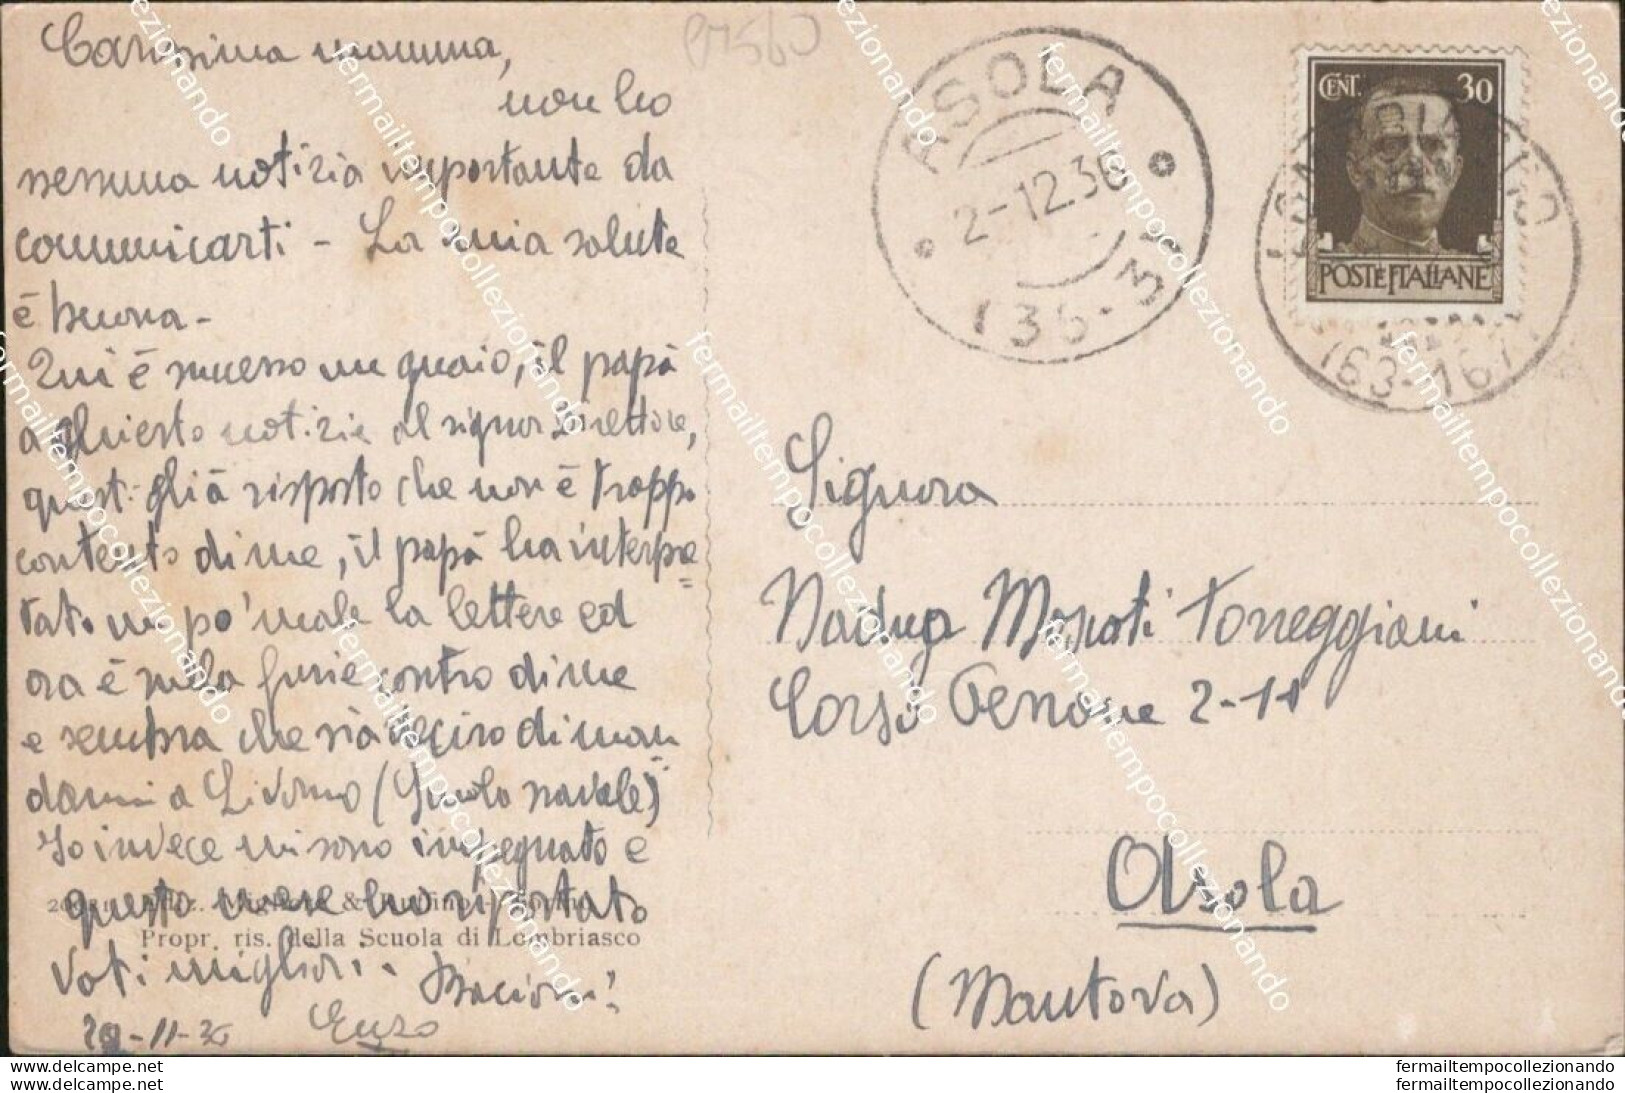 Carissima mamma,
non ho
nessuna notizia importante da
comunicarti - La mia salute
è buona -
Qui è successo un guaio, il papà
à chiesto notizie al signor Direttore,
questi gli à risposto che non è troppo
contento di me, il papà ha interpre=
tato un po' male la lettera ed
ora è sulla furie contro di me
e sembra che sia deciso di man
darmi a Livorno (Scuola navale)
Io invece mi sono impegnato e
questo mese ho riportato
voti migliori. Bacioni!
Enzo
29-11-36
Propr. ris. della Scuola di Lombriasco
ASOLA
2-12.36
CENT. 30
POSTE ITALIANE
163-167
Signora
Torreggiani
Corso 2-11
Asola
(Mantova)
fermailtempocollezionando
fermailtempocollezionando
www.delcampe.net
www.delcampe.net